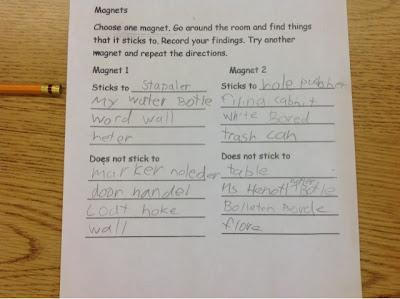 Magnets
Choose one magnet. Go around the room and find things
that it sticks to. Record your findings. Try another
magnet and repeat the directions.
Magnet 1
Sticks to Stapaler
My Water Botle
Word wall
heter
Does not stick to
marker noleder
doon handel
Lodt hoke
wall
Magnet 2
Sticks to hole
filing cabnit
White Bored
trash can
Does not stick to
table
Ms water Botle
Bolleton Borde
flore